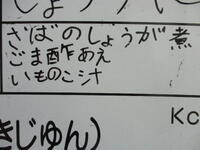 さばのしょうが煮
ごま酢あえ
いものこ汁
Kc
きじゅん)